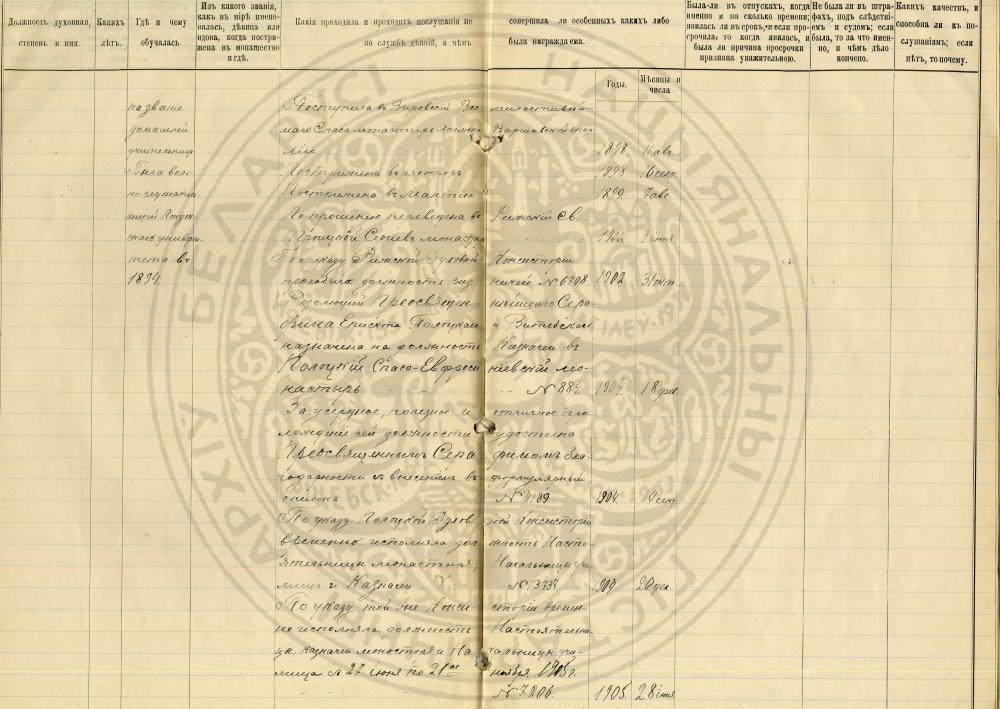 Должность духовная, степень и имя.
Какихъ лѣтъ.
Гдѣ и чему обучалась
Изъ какого званія, какъ въ мірѣ именовалась, дѣвица или вдова, когда пострижена въ монашество и гдѣ.
Какія проходила и проходитъ послушанія не по службѣ дѣяній, и чѣмъ
совершила ли особенныхъ какихъ либо была награждаема.
Годы.
Мѣсяцы и числа
Была-ли въ отпускахъ, когда именно и на сколько времени; явилась ли въ срокъ, и если просрочила, то когда явилась, и была ли причина просрочки признана уважительною.
Не была ли въ штрафахъ, подъ слѣдствіемъ и судомъ; если была, то за что именно, и чѣмъ дѣло кончено.
Какихъ качествъ, и способна ли къ послушаніямъ; если нѣтъ, то почему.
названіе
домашней
учительницы
Была воль
нослушатель
ницей Лондон
скаго универси
тета въ
1894.
Поступила въ Вировскій Все милостивый
маго Спаса монастырь Варшавской епар
хіи 1898 11 авг.
Пострижена въ рясофоръ 1898 16 сент.
Пострижена въ мантію 1899 7 авг.
По прошенію переведена въ Рижскій Св
Троицкій Сергіевъ монастырь 3 іюня
По указу Рижской Духовной Консисторіи
проходила должность риз ничей № 6798 1902 31 окт.
Резолюціей Преосвящен нѣйшаго Сера
фима Епископа Полоцкаго и Витебскаго
назначена на должность Казначеи въ
Полоцкій Спасо-Евфроси ніевскій мо
настырь № 884 1904 18 фев.
За усердное, полезное и отличное про
хожденіе сей должности удостоена
Преосвященнымъ Сера фимомъ бла
годарности съ внесеніемъ въ формулярный
списокъ № 4189 1904. 10 сент.
По указу Полоцкой Духов ной Консисторіи
временно исполняла дол жность Насто
ятельницы монастыря, Начальницы учи
лища и Казначеи № 13737 1904 20 дек.
По указу той же Конси сторіи времен
но исполняла должность Настоятельни
цы, Казначеи монастыря и На чальницы учи
лища съ 27 іюня по 21ое ноября 1905 г.
№ 7206. 1905. 28 іюня